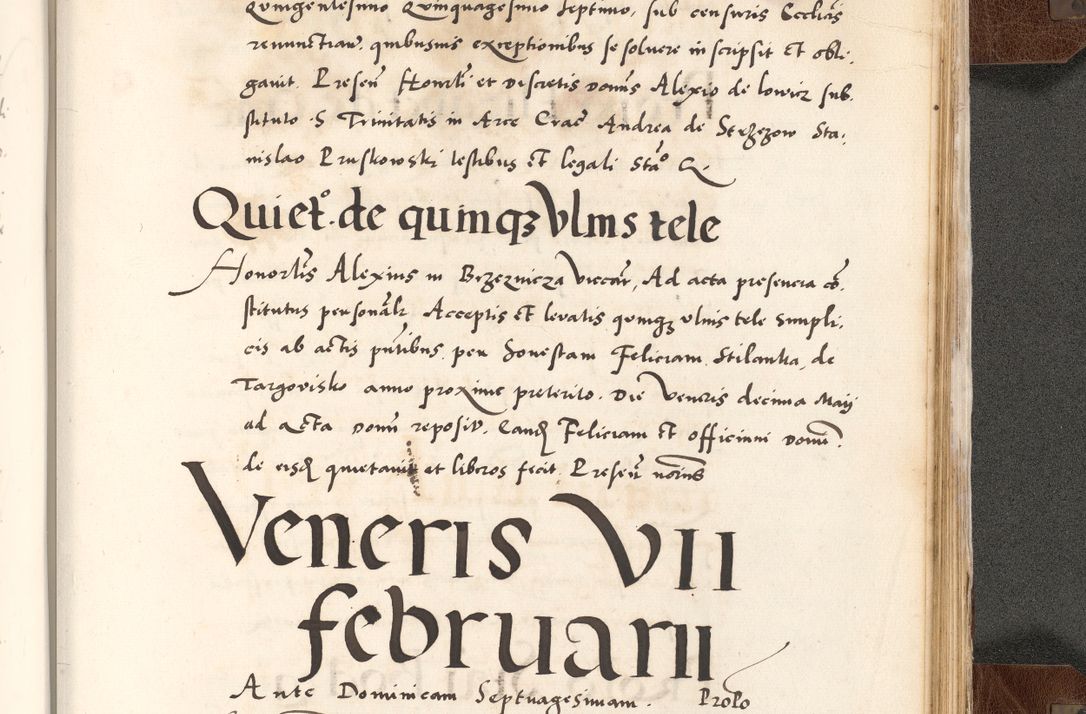 Quingentesimo Quinquagesimo septimo, sub censuris Eccliãs
renunctiaw. quibusuis exceptionibus se soluere inscripsit Et obli,
gauit. Presen̄ Honorli et Discretis Domīs Alexio de lowicz sub,
stituto S Trinitatis in Arce Crac̄ Andrea de Strzezow Sta,
nislao Pruskowski testibus Et legali Stãº
Quiet.º de quinqȝ Vlms tele
Honorlīs Alexius in Brzeznicza Viccar̄, Ad acta presencia cō,
stitutus personalr̄ Acceptis Et leuatis quinqȝ vlnis tele simpli,
cis ab actis pn̄tibus per honestam Feliciam Stilanka, de
Targovisko anno proxime preterito. Die Veneris decima Maij
ad Acta Domī reposit. Eand Feliciam Et officium Domī.
de eisd quietauit et liberos fecit. Presen̄
Veneris VII
februarii
Ante Dominicam Septuagesimam.